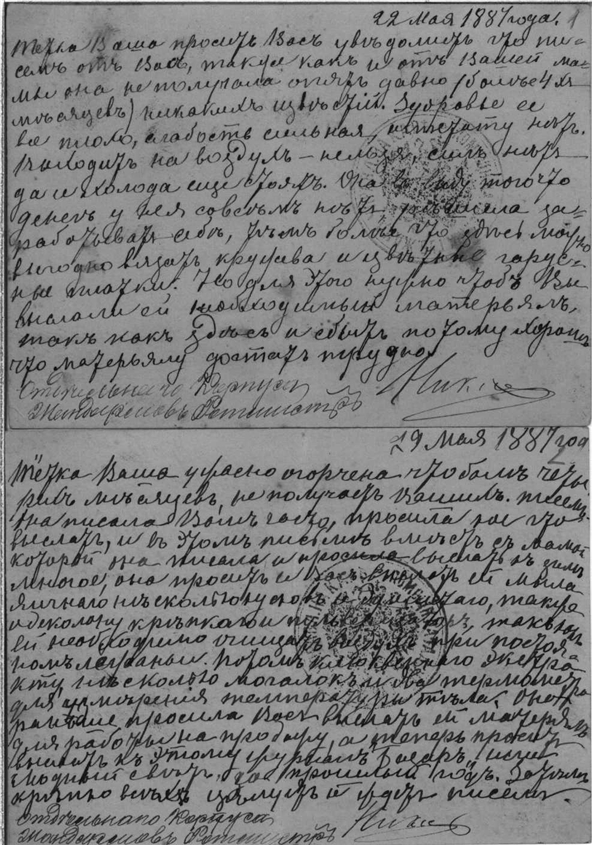 22 Мая 1887 года. 1
Тетка Ваша проситъ Васъ увѣдомить что пи-
семъ отъ Васъ, также какъ и отъ Вашей ма-
мы она не получала опять давно (более 4хъ
мѣсяцевъ) никакихъ извѣстій. Здоровье ее
все плохо, слабость сильная, аппетиту нѣтъ.
Выходить на воздухъ – нельзя, силъ нѣтъ
да и холода еще стоятъ. Она въ виду того что
денегъ у нея совсѣмъ нѣтъ, рѣшила за-
работывать себѣ, тѣмъ более что здѣсь можно
выгодно вязать кружева и цвѣтные гарус-
ные платки. Но для этого нужно чтобъ Вы
выслали ей необходимый матерьялъ,
такъ какъ здѣсь и сбытъ потому хорошъ
что матерьялу достать трудно.
Отдѣльнаго Корпуса
Жандармовъ Ротмистръ
29 Мая 1887 год
Тётка Ваша ужасно огорчена что более четы-
рехъ мѣсяцевъ, не получаетъ Вашихъ писемъ
Она писала Вамъ часто, просила кое что
выслать, и въ этомъ письмѣ вмѣстѣ съ мамой
которой она писала и просила выслать къ зимѣ
многое, она проситъ и Васъ выслать ей мыла
яичнаго нѣсколько кусковъ и также
одеколону крѣпкаго и такъ какъ
ей необходимо очищать воздухъ при постоя-
номъ лежаньи. Потомъ клюквеннаго экстра-
кту, нѣсколько мочалокъ и два термометра
для измѣренія температуры тѣла. Она
раньше просила Васъ выслать ей матерьялъ
для работы на пробору, а теперь проситъ
выслать къ этому журналъ "Базаръ", или
"Модный Свѣтъ", за прошлый годъ. Затѣмъ
крѣпко всѣхъ цѣлуетъ и ждетъ писемъ.
Отдѣльнаго Корпуса
Жандармовъ Ротмистръ